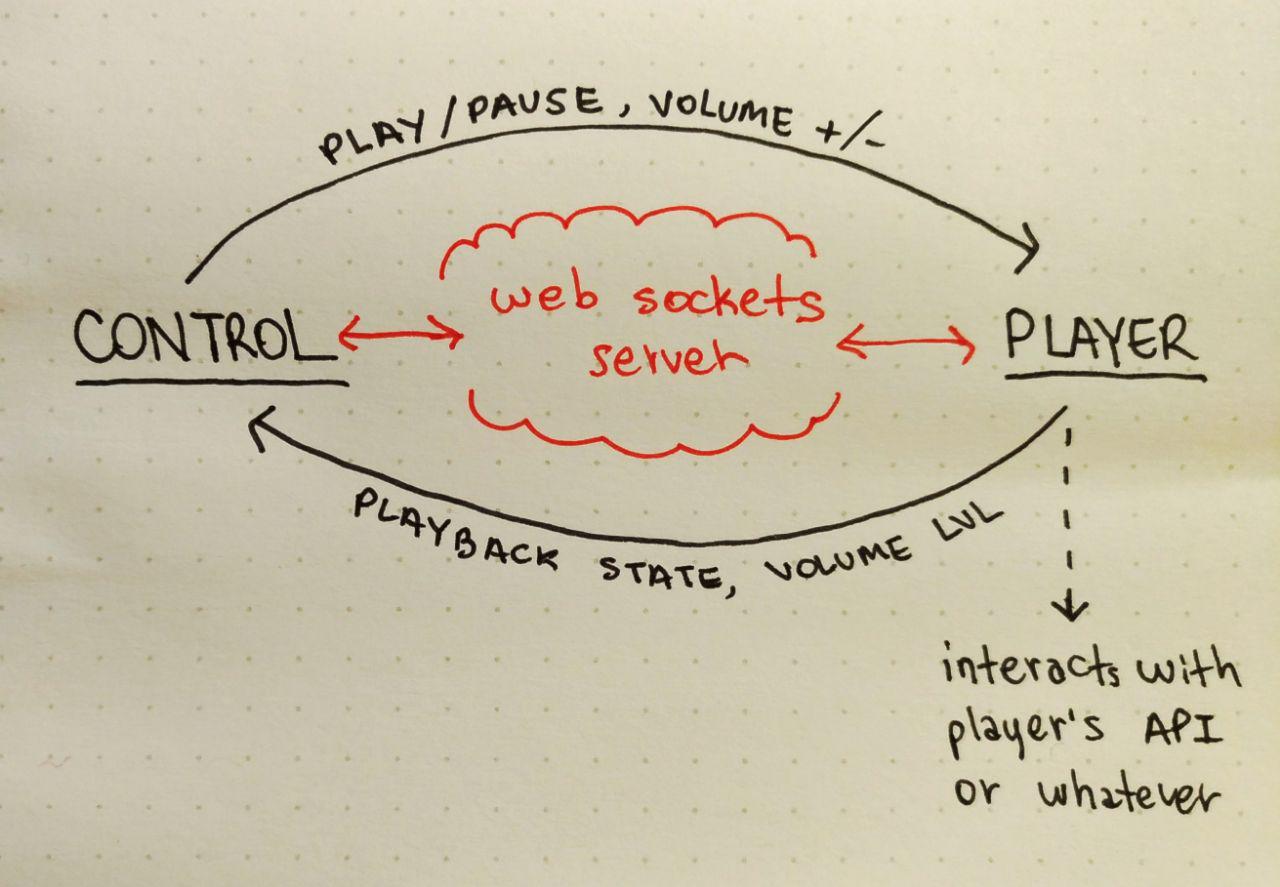 PLAY/PAUSE, VOLUME +/-
web sockets
server
CONTROL
PLAYER
PLAYBACK STATE, VOLUME LVL
interacts with
player's API
or whatever